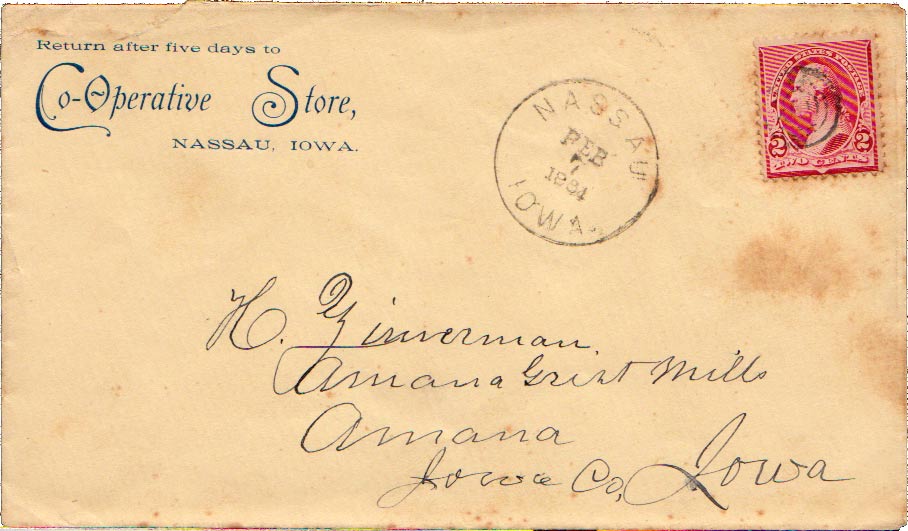 Return after five days to
Co-Operative Store,
NASSAU, IOWA.
NASSAU
FEB
7
1894
IOWA.
UNITED STATES POSTAGE
2 2
TWO CENTS
H. Zimmerman
Amana Grist Mills
Amana
Iowa Co, Iowa